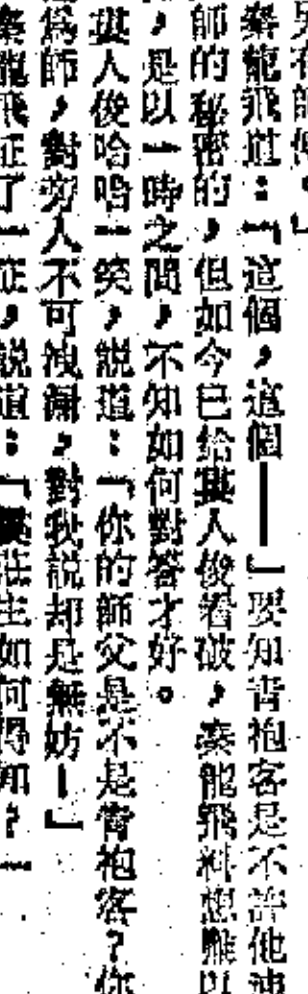 秦龍飛道：「這個，這個——」要知青袍客是不許他
師的秘密的，但如今已給龔人俊看破，秦龍飛料想難以
，是以一時之間，不知如何對答才好。
龔人俊哈哈一笑，說道：「你的師父是不是青袍客？你
為師，對旁人不可洩漏，對我說却是無妨！」
秦龍飛怔了一怔，說道：「龔莊主如何得知？